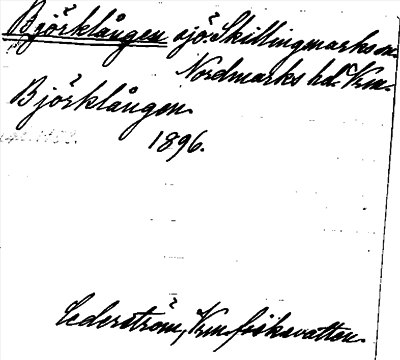 Björklången sjö. Skillingmarks sn.
Nordmarks hd. Vrm.
Björklången.
1896.
Cederström, Vrm. fiskevatten.